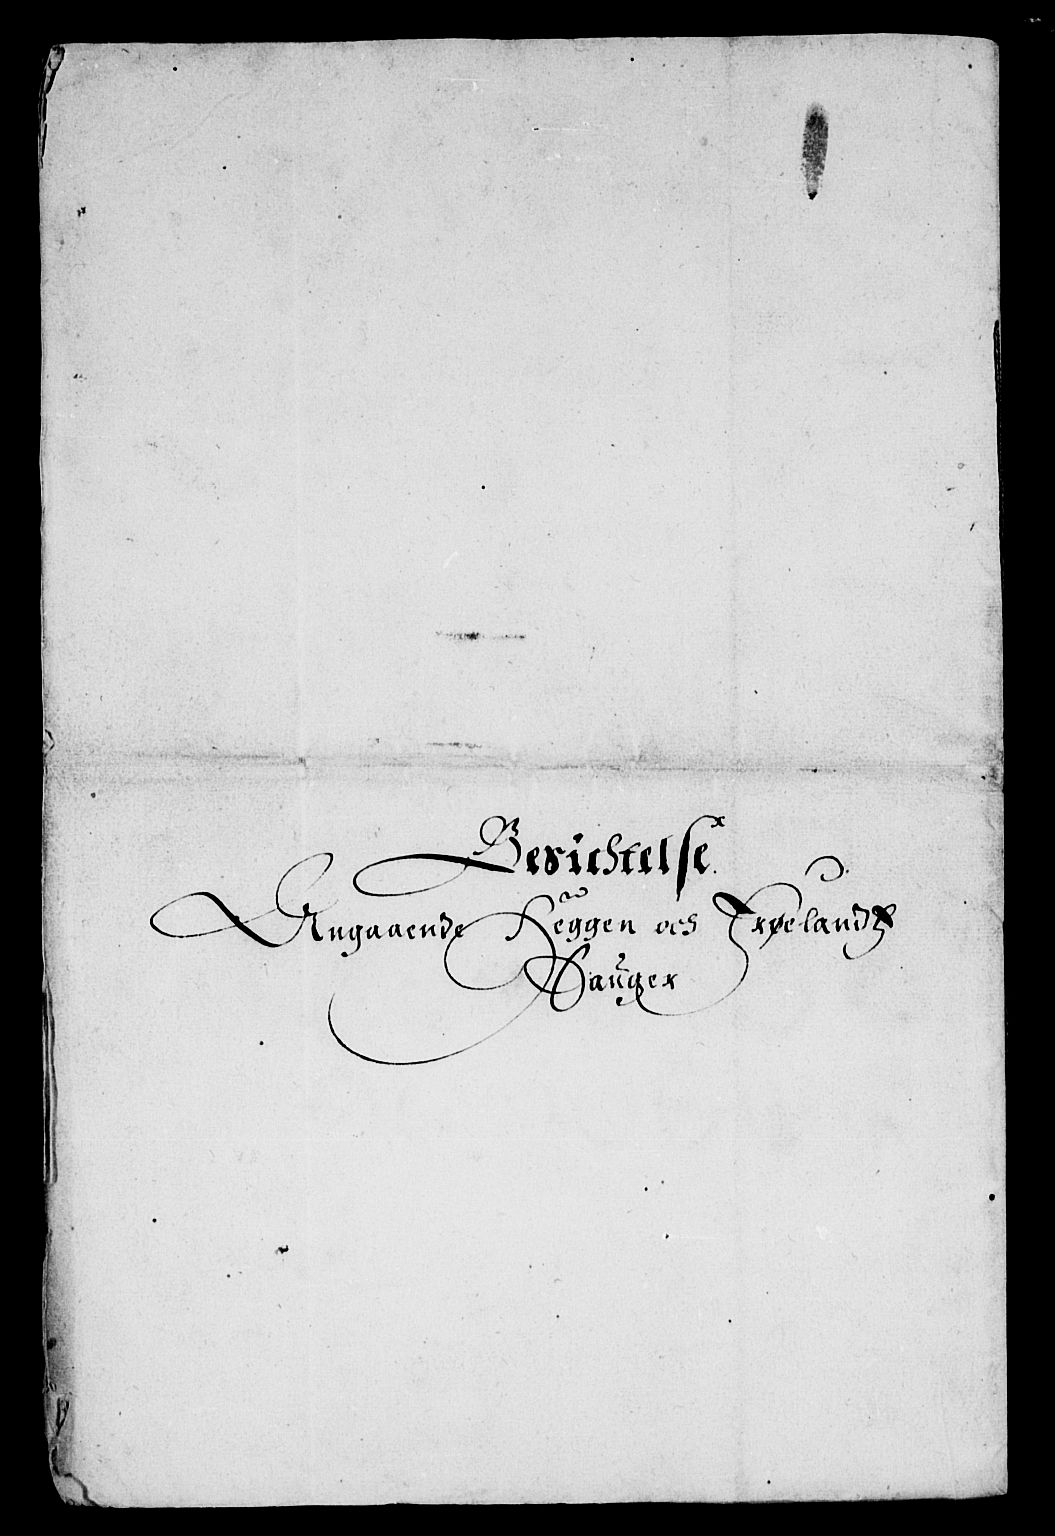 Berichtelse
Angaaende Heggen och Frøelandtz
Sauger